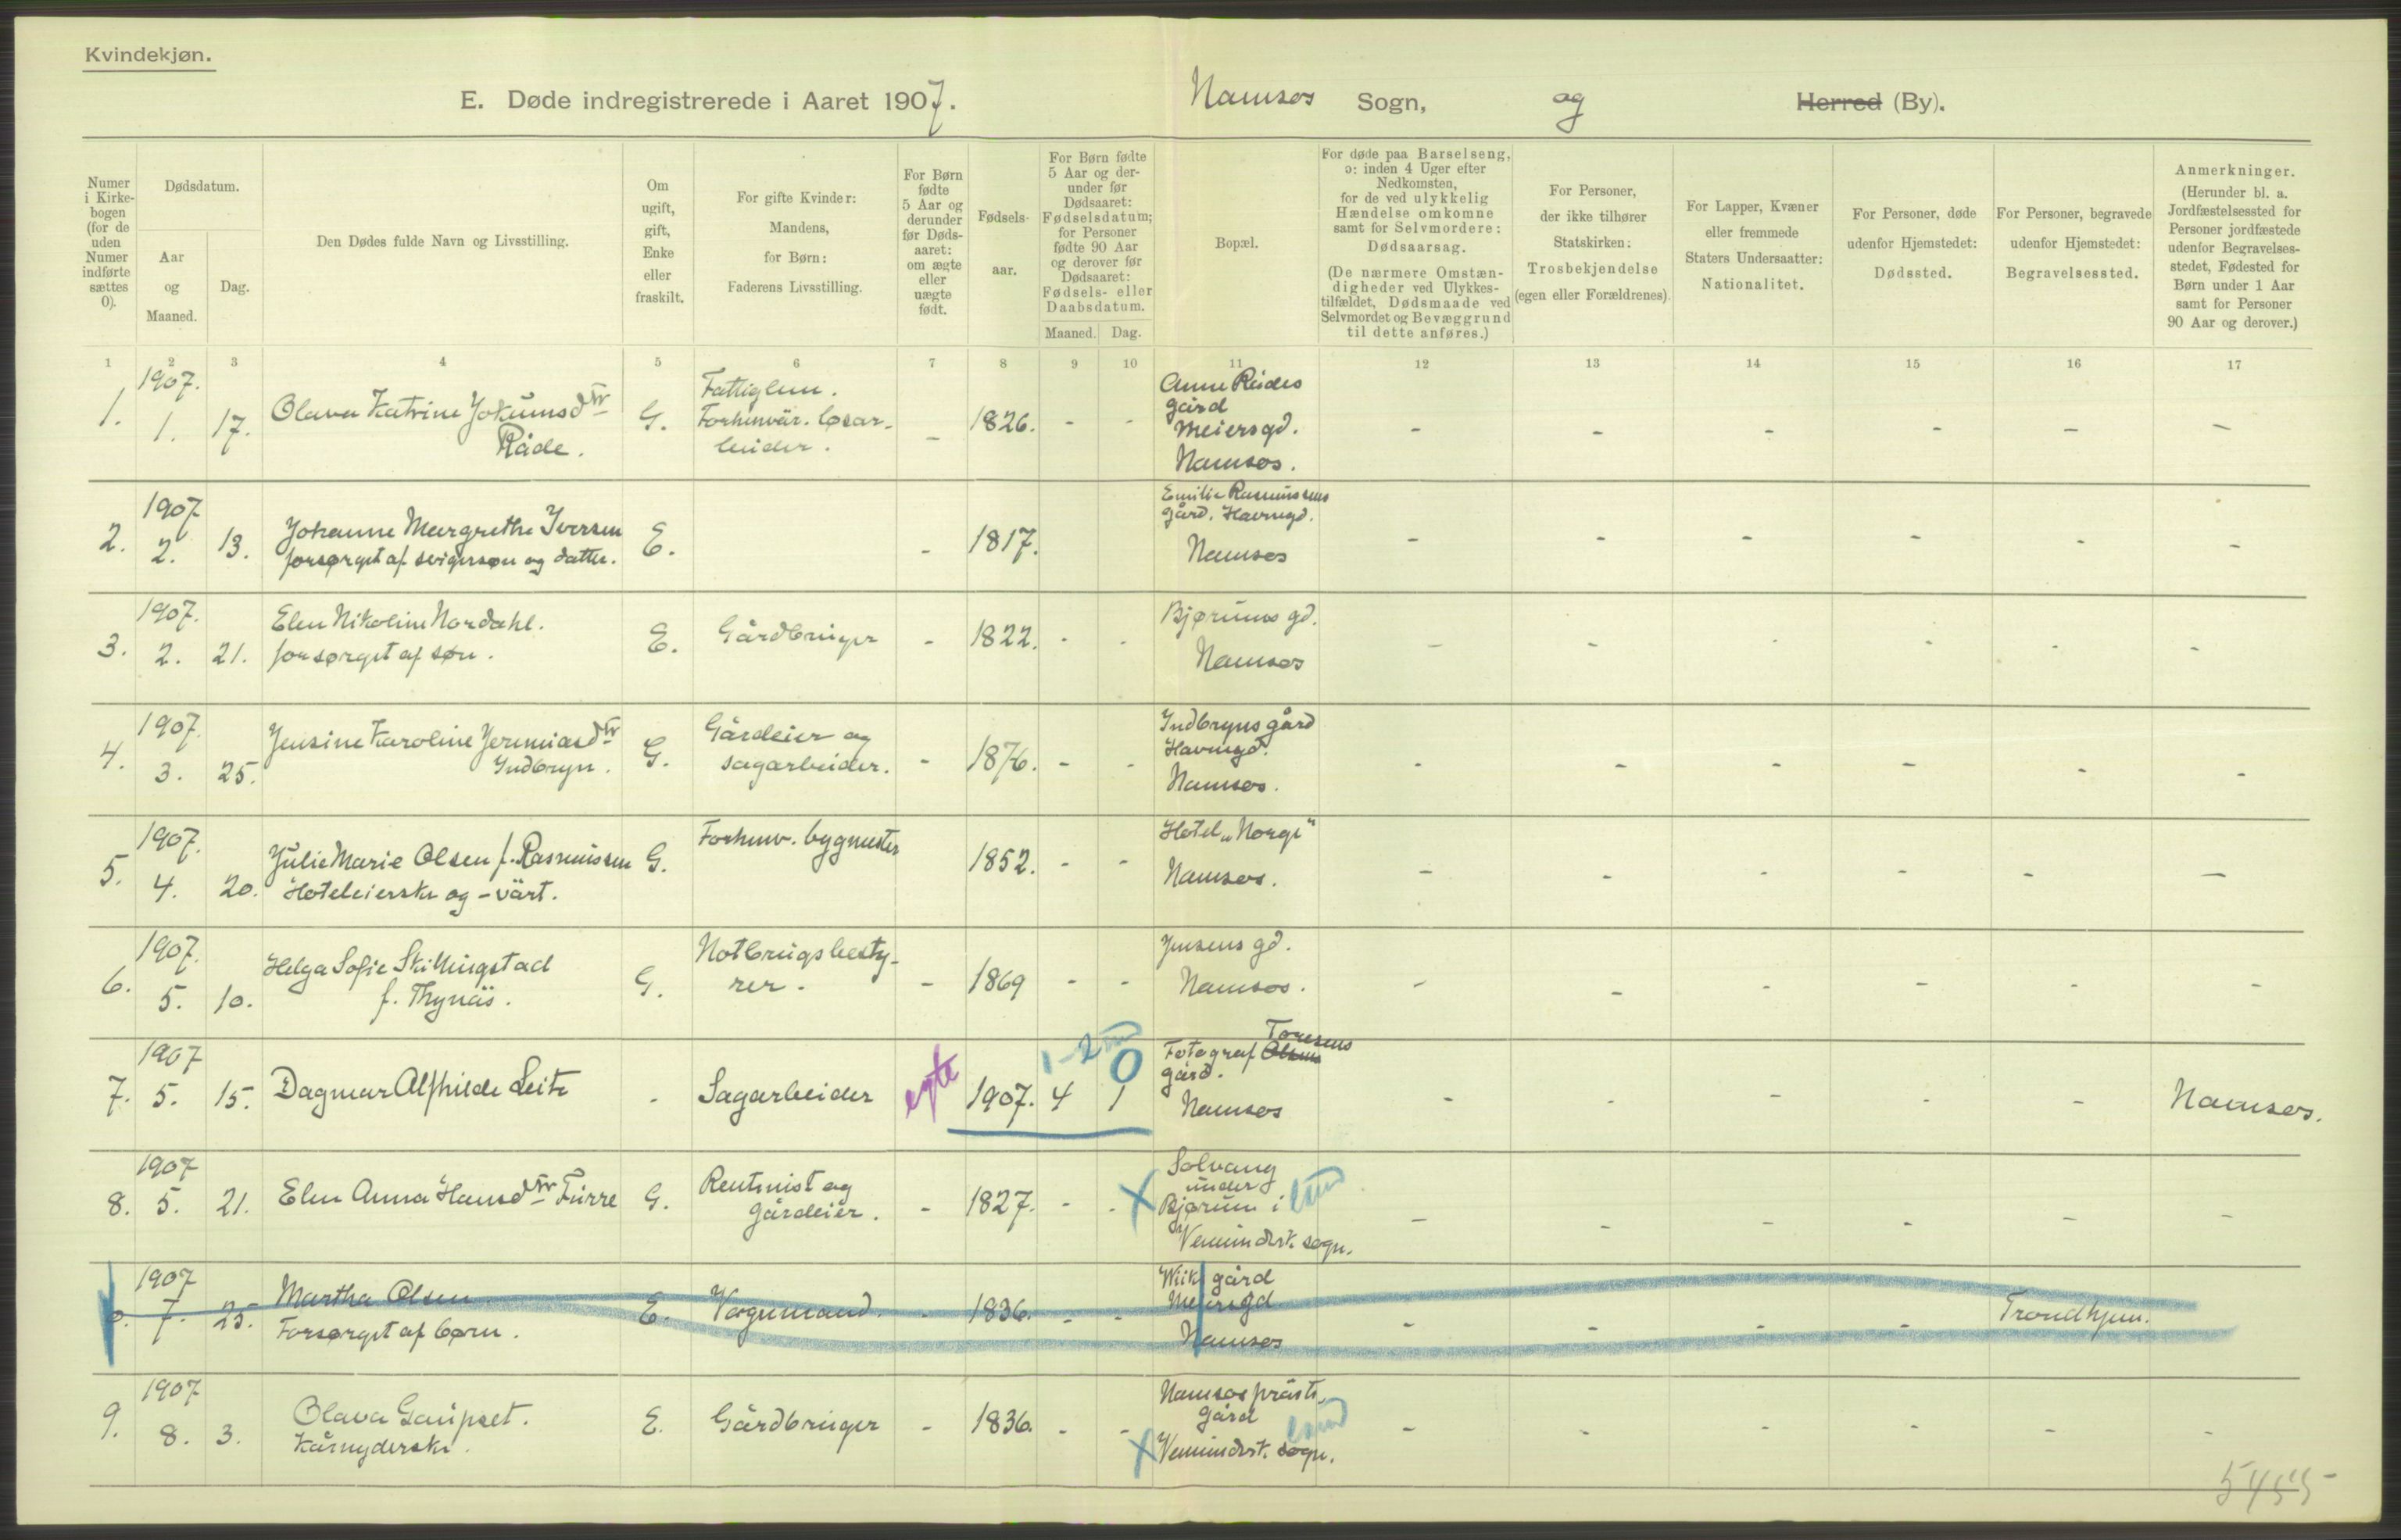 Kvindekjøn.
E. Døde indregistrerede i Aaret 1907. Namsos Sogn, og Herred (By).
Numer i Kirkebogen (for de uden Numer indførte sættes 0).
Dødsdatum.
Aar og Maaned.
Dag.
Den Dødes fulde Navn og Livsstilling.
Om ugift, gift, Enke eller fraskilt.
For gifte Kvinder: Mandens, for Børn: Faderens Livsstilling.
For Børn fødte 5 Aar og derunder før Dødsaaret: om ægte eller uægte født.
Fødselsaar.
For Børn fødte 5 Aar og derunder før Dødsaaret: Fødselsdatum; for Personer fødte 90 Aar og derover før Dødsaaret: Fødsels- eller Daabsdatum.
Maaned. Dag.
Bopæl.
For døde paa Barselseng, ɔ: inden 4 Uger efter Nedkomsten, for de ved ulykkelig Hændelse omkomne samt for Selvmordere: Dødsaarsag.
(De nærmere Omstændigheder ved Ulykkestilfældet, Dødsmaade ved Selvmordet og Bevæggrund til dette anføres.)
For Personer, der ikke tilhører Statskirken: Trosbekjendelse (egen eller Forældrenes).
For Lapper, Kvæner eller fremmede Staters Undersaatter: Nationalitet.
For Personer, døde udenfor Hjemstedet: Dødssted.
For Personer, begravede udenfor Hjemstedet: Begravelsessted.
Anmerkninger.
(Herunder bl. a. Jordfæstelsessted for Personer jordfæstede udenfor Begravelsesstedet, Fødested for Børn under 1 Aar samt for Personer 90 Aar og derover.)
1 2 3 4 5 6 7 8 9 10 11 12 13 14 15 16 17
1. 1907. 1. 17. Olava Katrine Jokumsdtr Råde. G. Fattiglem. Forhenvär. løsarbeider. - 1826. - - Anne Rüdes gård Meiersgd. Namsos. - - - - - -
2. 1907 2. 13. Johanne Margrethe Iversen forsørget af svigersøn og datter. E. - 1817. Emilie Rasmussens gård. Havnegd. Namsos - - - - - -
3. 1907. 2. 21. Elen Nikoline Nordahl. forsørget af søn. E. Gårdbruger - 1822. - - Bjørums gd. Namsos - - - - - -
4. 1907. 3. 25. Jensine Karoline Jeremiasdtr Indbryn. G. Gårdeier og sagarbeider. - 1876. - - Indbryns gård Havnegd. Namsos. - - - - - -
5. 1907. 4. 20. Julie Marie Olsen f. Rasmussen Hoteleierske og -värt. G. Forhenv. bygmester 1852. - - Hotel „Norge" Namsos. - - - - - -
6. 1907. 5. 10. Helga Sofie Skillingstad f. Thynäs. G. Notbrugsbestyrer. - 1869 - - Jensens gd. Namsos. - - - - - -
7. 1907 5. 15. Dagmar Alfhilde Leite - Sagarbeider egte 1907. 4 1 1-2 0 Fotograf Olsens Toresens gård. Namsos - - - - - Namsos.
8. 1907 5. 21. Elen Anna Hansdtr Furre G. Rentenist og gårdeier. - 1827. - - X Solvang under Bjørum i Vemundvk. sogn. - - - - - -
0. 1907 7. 25. Martha Olsen Forsørget af børn. E. Vognmand. - 1836. - - Wiiks gård Meiersgd Namsos - - - - Trondhjem.
9. 1907 8. 3. Olava Gaupset. Kårnyderske. E. Gårdbruger - 1836. - - X Namsos præstegård Vemundvk. sogn. - - - - - -